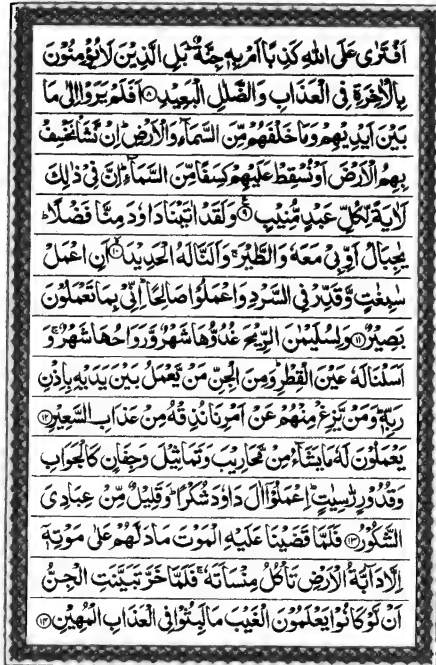 اَفْتَرٰى عَلَى اللّٰهِ كَذِبًا اَمْ بِهٖ جِنَّةٌ ؕ بَلِ الَّذِيْنَ لَا يُؤْمِنُوْنَ
بِالْاٰخِرَةِ فِى الْعَذَابِ وَالضَّلٰلِ الْبَعِيْدِ ۝۸ اَفَلَمْ يَرَوْا اِلٰى مَا
بَيْنَ اَيْدِيْهِمْ وَمَا خَلْفَهُمْ مِّنَ السَّمَآءِ وَالْاَرْضِ ؕ اِنْ نَّشَاْ نَخْسِفْ
بِهِمُ الْاَرْضَ اَوْ نُسْقِطْ عَلَيْهِمْ كِسَفًا مِّنَ السَّمَآءِ ؕ اِنَّ فِىْ ذٰلِكَ
لَاٰيَةً لِّكُلِّ عَبْدٍ مُّنِيْبٍ ۝۹ وَلَقَدْ اٰتَيْنَا دَاوٗدَ مِنَّا فَضْلًا ؕ
يٰجِبَالُ اَوِّبِىْ مَعَهٗ وَالطَّيْرَ ۚ وَاَلَنَّا لَهُ الْحَدِيْدَ ۝۱۰ اَنِ اعْمَلْ
سٰبِغٰتٍ وَّقَدِّرْ فِى السَّرْدِ وَاعْمَلُوْا صَالِحًا ؕ اِنِّىْ بِمَا تَعْمَلُوْنَ
بَصِيْرٌ ۝۱۱ وَلِسُلَيْمٰنَ الرِّيْحَ غُدُوُّهَا شَهْرٌ وَّرَوَاحُهَا شَهْرٌ ۚ وَ
اَسَلْنَا لَهٗ عَيْنَ الْقِطْرِ ؕ وَمِنَ الْجِنِّ مَنْ يَّعْمَلُ بَيْنَ يَدَيْهِ بِاِذْنِ
رَبِّهٖ ؕ وَمَنْ يَّزِغْ مِنْهُمْ عَنْ اَمْرِنَا نُذِقْهُ مِنْ عَذَابِ السَّعِيْرِ ۝۱۲
يَعْمَلُوْنَ لَهٗ مَا يَشَآءُ مِنْ مَّحَارِيْبَ وَتَمَاثِيْلَ وَجِفَانٍ كَالْجَوَابِ
وَقُدُوْرٍ رّٰسِيٰتٍ ؕ اِعْمَلُوْۤا اٰلَ دَاوٗدَ شُكْرًا ؕ وَقَلِيْلٌ مِّنْ عِبَادِىَ
الشَّكُوْرُ ۝۱۳ فَلَمَّا قَضَيْنَا عَلَيْهِ الْمَوْتَ مَا دَلَّهُمْ عَلٰى مَوْتِهٖۤ
اِلَّا دَآبَّةُ الْاَرْضِ تَاْكُلُ مِنْسَاَتَهٗ ۚ فَلَمَّا خَرَّ تَبَيَّنَتِ الْجِنُّ
اَنْ لَّوْ كَانُوْا يَعْلَمُوْنَ الْغَيْبَ مَا لَبِثُوْا فِى الْعَذَابِ الْمُهِيْنِ ۝۱۴